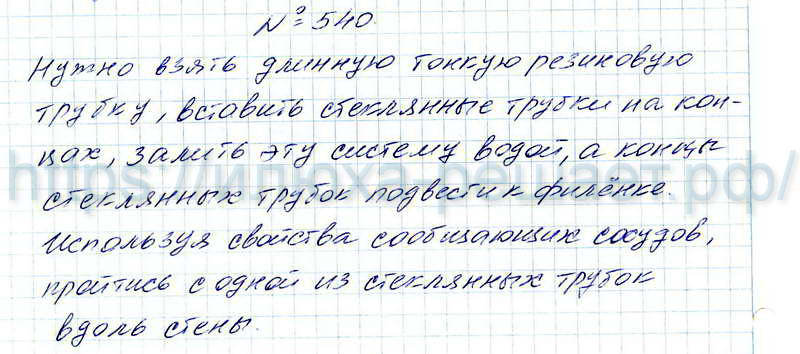 № 540.
Нужно взять длинную тонкую резиновую
трубку, вставить стеклянные трубки на кон-
цах, залить эту систему водой, а концы
https://илюха-решает.рф/
стеклянных трубок подвести к филёнке.
Используя свойства сообщающих сосудов,
пройтись с одной из стеклянных трубок
вдоль стены.